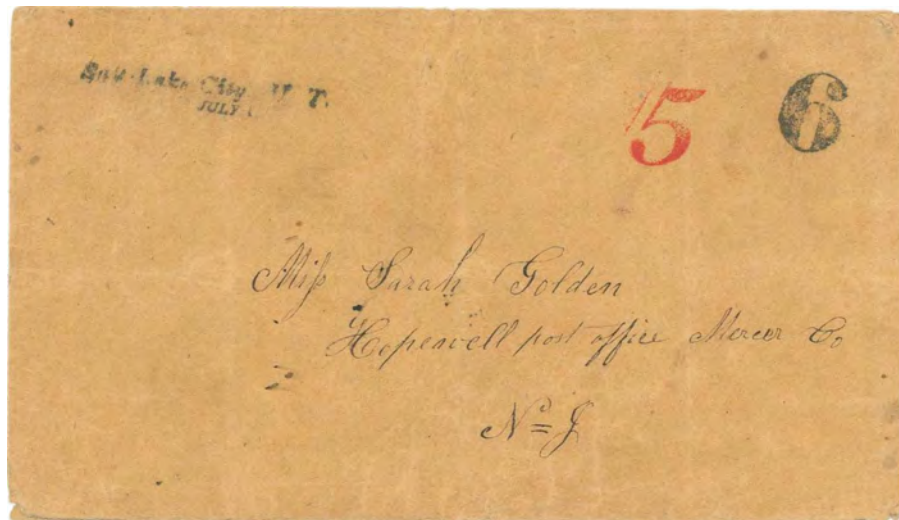 Salt Lake City U. T.
JULY
5 6
Miss Sarah Golden
Hopewell post office Mercer Co
N=J